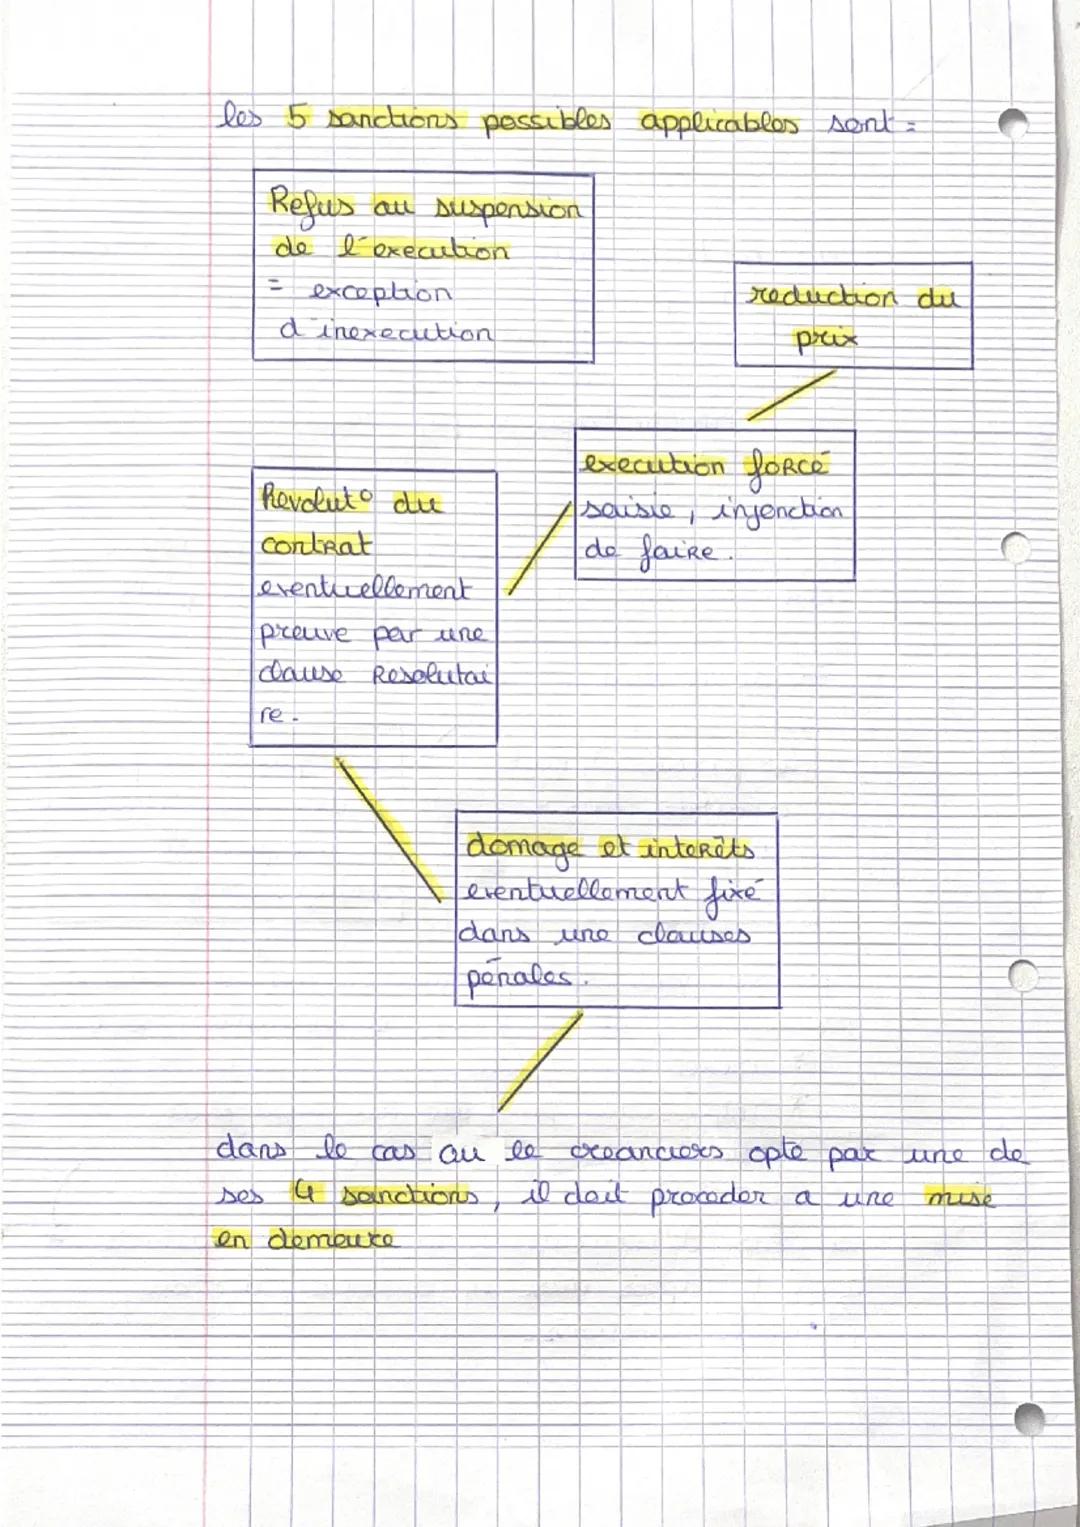 les 5 sanctions possibles applicables sont =
Refus ou suspension
de l'execution
= exception
d'inexecution
reduction du
prix
execution forcé
saisie, injonction
de faire.
Revolut° du
contrat
eventuellement
preuve par une
clause Resolutai
re.
domage et interêts
eventuellement fixé
dans une clauses
pénales.
dans le cas ou le creanciers opte par une de
ses 4 sanctions, il doit proceder a une mise
en demeure